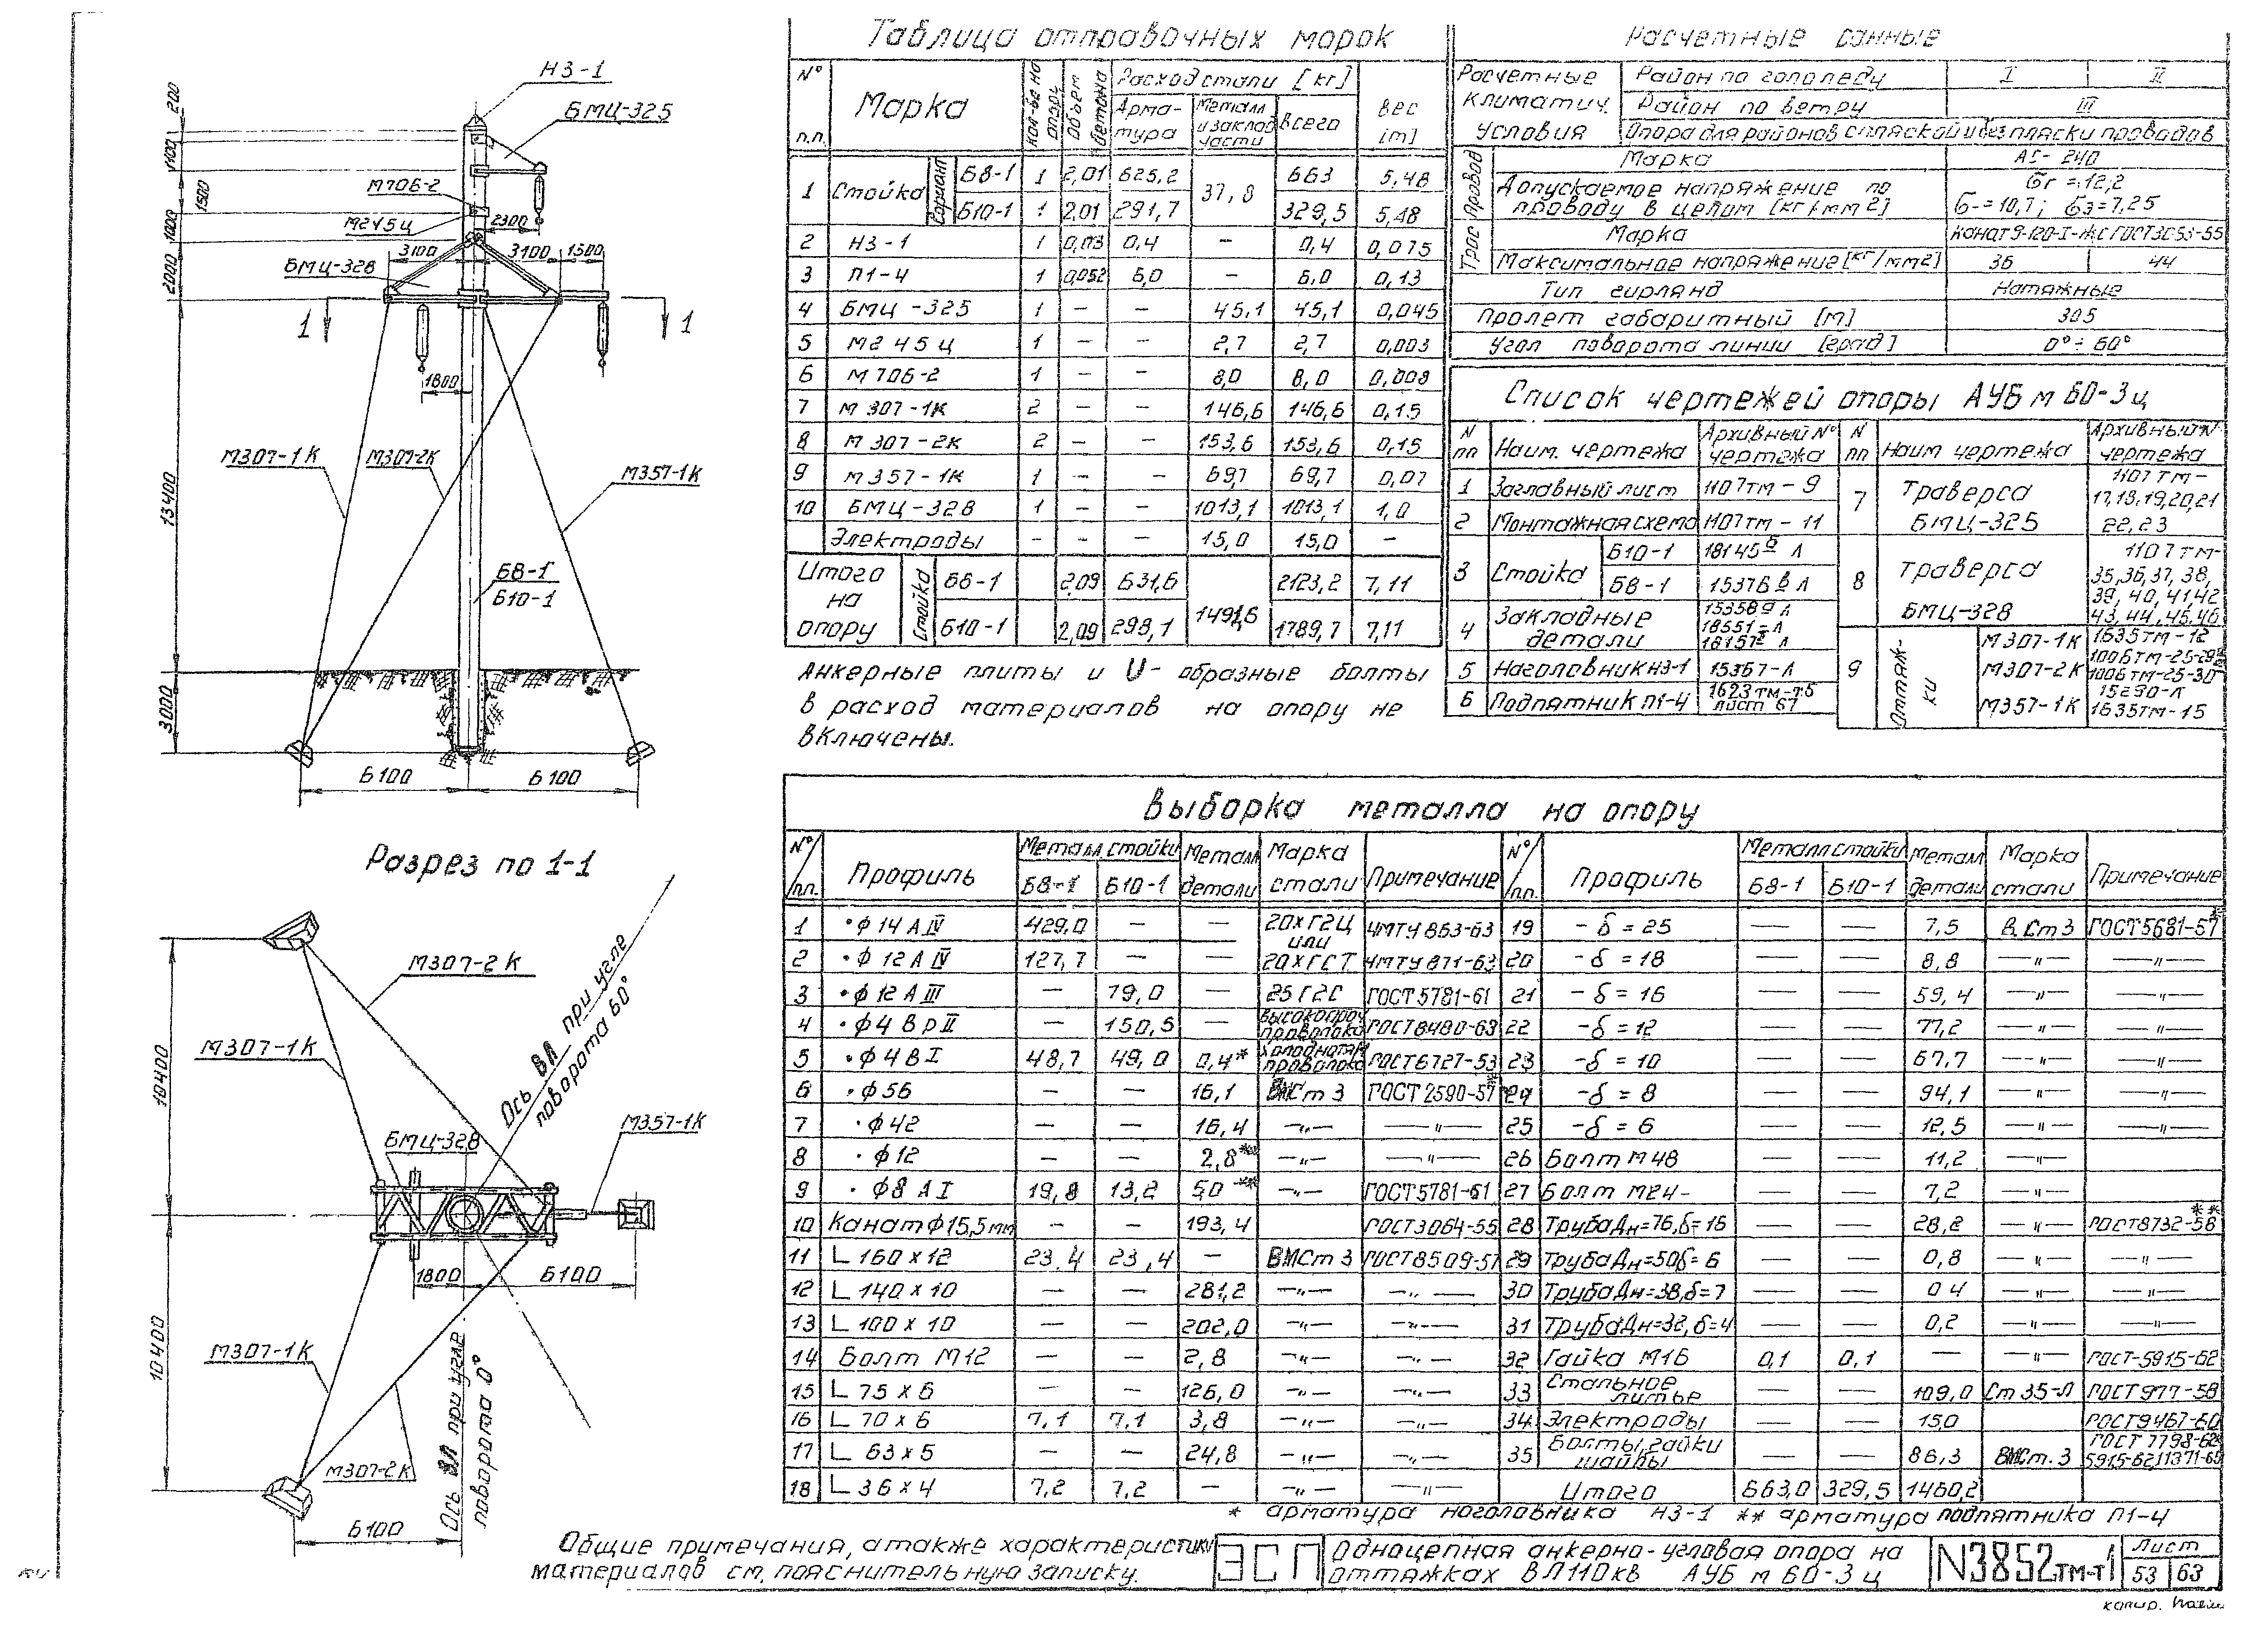 Н3-1
БМЦ-325
200
1100
1500
1000
2000
М706-2
М245ц
2300
3100
3100
1500
БМЦ-328
1
1
1800
13400
М307-1К
М307-2К
М357-1К
Б8-1
Б10-1
3000
6100
6100
Разрез по 1-1
М307-2К
М307-1К
Ось ВЛ при угле
поворота 60°
БМЦ-328
М357-1К
10400
10400
1800
6100
М307-1К
М307-2К
Ось ВЛ при угле
поворота 0°
6100
Таблица отправочных марок
N° п.п. Марка Кол-во на опору Объем бетона Расход стали [кг] Вес [т]
Арматура Металл и заклад части Всего
1 Стойка Вариант Б8-1 1 2,01 625,2 37,8 663 5,48
Б10-1 1 2,01 291,7 329,5 5,48
2 Н3-1 1 0,03 0,4 — 0,4 0,075
3 П1-4 1 0,052 6,0 — 6,0 0,13
4 БМЦ-325 1 — — 45,1 45,1 0,045
5 М245ц 1 — — 2,7 2,7 0,003
6 М706-2 1 — — 8,0 8,0 0,008
7 М307-1К 2 — — 146,6 146,6 0,15
8 М307-2К 2 — — 153,6 153,6 0,15
9 М357-1К 1 — — 69,7 69,7 0,07
10 БМЦ-328 1 — — 1013,1 1013,1 1,0
Электроды — — — 15,0 15,0 —
Итого на опору Стойка Б8-1 2,09 631,6 2123,2 7,11
Б10-1 2,09 298,1 1789,7 7,11
Анкерные плиты и U-образные болты
в расход материалов на опору не
включены.
Расчетные данные
Расчетные климатич. условия Район по гололеду I II
Район по ветру III
Опора для районов с пляской и без пляски проводов
Провод Марка АС-240
Допускаемое напряжение по
проводу в целом [кг/мм2] бг=12,2
б-=10,7; бэ=7,25
Трос Марка Канат 9-120-I-ЖС ГОСТ 3063-55
Максимальное напряжение [кг/мм2] 36 44
Тип гирлянд Натяжные
Пролет габаритный [м] 305
Угол поворота линии [град] 0° ÷ 60°
Список чертежей опоры АУБм 60-3ц
N пп Наим. чертежа Архивный N° чертежа N пп Наим чертежа Архивный N° чертежа
1 Заглавный лист 1107тм-9
2 Монтажная схема 1107тм-11
3 Стойка Б10-1
Б8-1
4 Закладные
детали
5 Наголовник Н3-1 15367-Л
6 Подпятник П1-4 1623тм-т5
лист 67
7 Траверса
БМЦ-325
1107тм-
17,18,19,20,21
22,23
8 Траверса
БМЦ-328
1107тм-
35,36,37,38,
39,40,41,42
43,44,45,46
9 Оттяжки М307-1К 1635тм-12
М307-2К 1006тм-25-30
15290-Л
М357-1К 1635тм-15
Выборка металла на опору
N°/п.п. Профиль Металл стойки Металл детали Марка стали Примечание N°/п.п. Профиль Металл стойки Металл детали Марка стали Примечание
Б8-1 Б10-1 Б8-1 Б10-1
1 •Ф14АIV 429,0 — — 20ХГ2Ц или ЧМТУ 863-63 19 -δ=25 — — 7,5 В Ст3 ГОСТ5681-57*
2 •Ф12АIV 127,7 — — 20ХГСТ ЧМТУ 871-63 20 -δ=18 — — 8,8 —"— —"—
3 •Ф12АIII — 79,0 — 25Г2С ГОСТ5781-61 21 -δ=16 — — 59,4 —"— —"—
4 •Ф4ВрII — 150,5 — Высокопроч проволока ГОСТ8480-63 22 -δ=12 — — 77,2 —"— —"—
5 •Ф4ВI 48,7 49,0 0,4* Холоднотян проволока ГОСТ6727-53 23 -δ=10 — — 67,7 —"— —"—
6 •Ф56 — — 16,1 ВМСт3 ГОСТ2590-57* 24 -δ=8 — — 94,1 —"— —"—
7 •Ф42 — — 16,4 —"— —"— 25 -δ=6 — — 12,5 —"— —"—
8 •Ф12 — — 2,8** —"— —"— 26 Болт М48 — — 11,2 —"—
9 •Ф8АI 19,8 13,2 5,0** —"— ГОСТ5781-61 27 Болт М24- — — 7,2 —"—
10 Канат Ф15,5мм — — 193,4 ГОСТ3064-55 28 Труба Дн=76,δ=16 — — 28,2 —"— ГОСТ8732-58**
11 L160х12 23,4 23,4 — ВМСт3 ГОСТ8509-57 29 Труба Дн=50δ=6 — — 0,8 " —"—
12 L140х10 — — 281,2 —"— —"— 30 Труба Дн=38,δ=7 — — 0 4 —"— —"—
13 L100х10 — — 202,0 —"— —"— 31 Труба Дн=32,δ=4 — — 0,2 —"— —"—
14 Болт М12 — — 2,8 —"— —"— 32 Гайка М16 0,1 0,1 — —"— ГОСТ-5915-62
15 L75х6 — — 126,0 —"— —"— 33 Стальное литье — — 109,0 Ст35-Л ГОСТ977-58
16 L70х6 7,1 7,1 3,8 —"— —"— 34 Электроды — — 15,0 ГОСТ9467-60
17 L63х5 — — 24,8 —"— —"— 35 Болты, гайки шайбы — — 86,3 ВМСт.3 ГОСТ 7798-62
18 L36х4 7,2 7,2 — —"— —"— Итого 663,0 329,5 1460,2
* арматура наголовника Н3-1 ** арматура подпятника П1-4
Общие примечания, а также характеристики
материалов см. пояснительную записку.
ЭСП
Одноцепная анкерно-угловая опора на
оттяжках ВЛ110кв АУБм60-3ц
N3852тм-т1
Лист
53 63
копир.